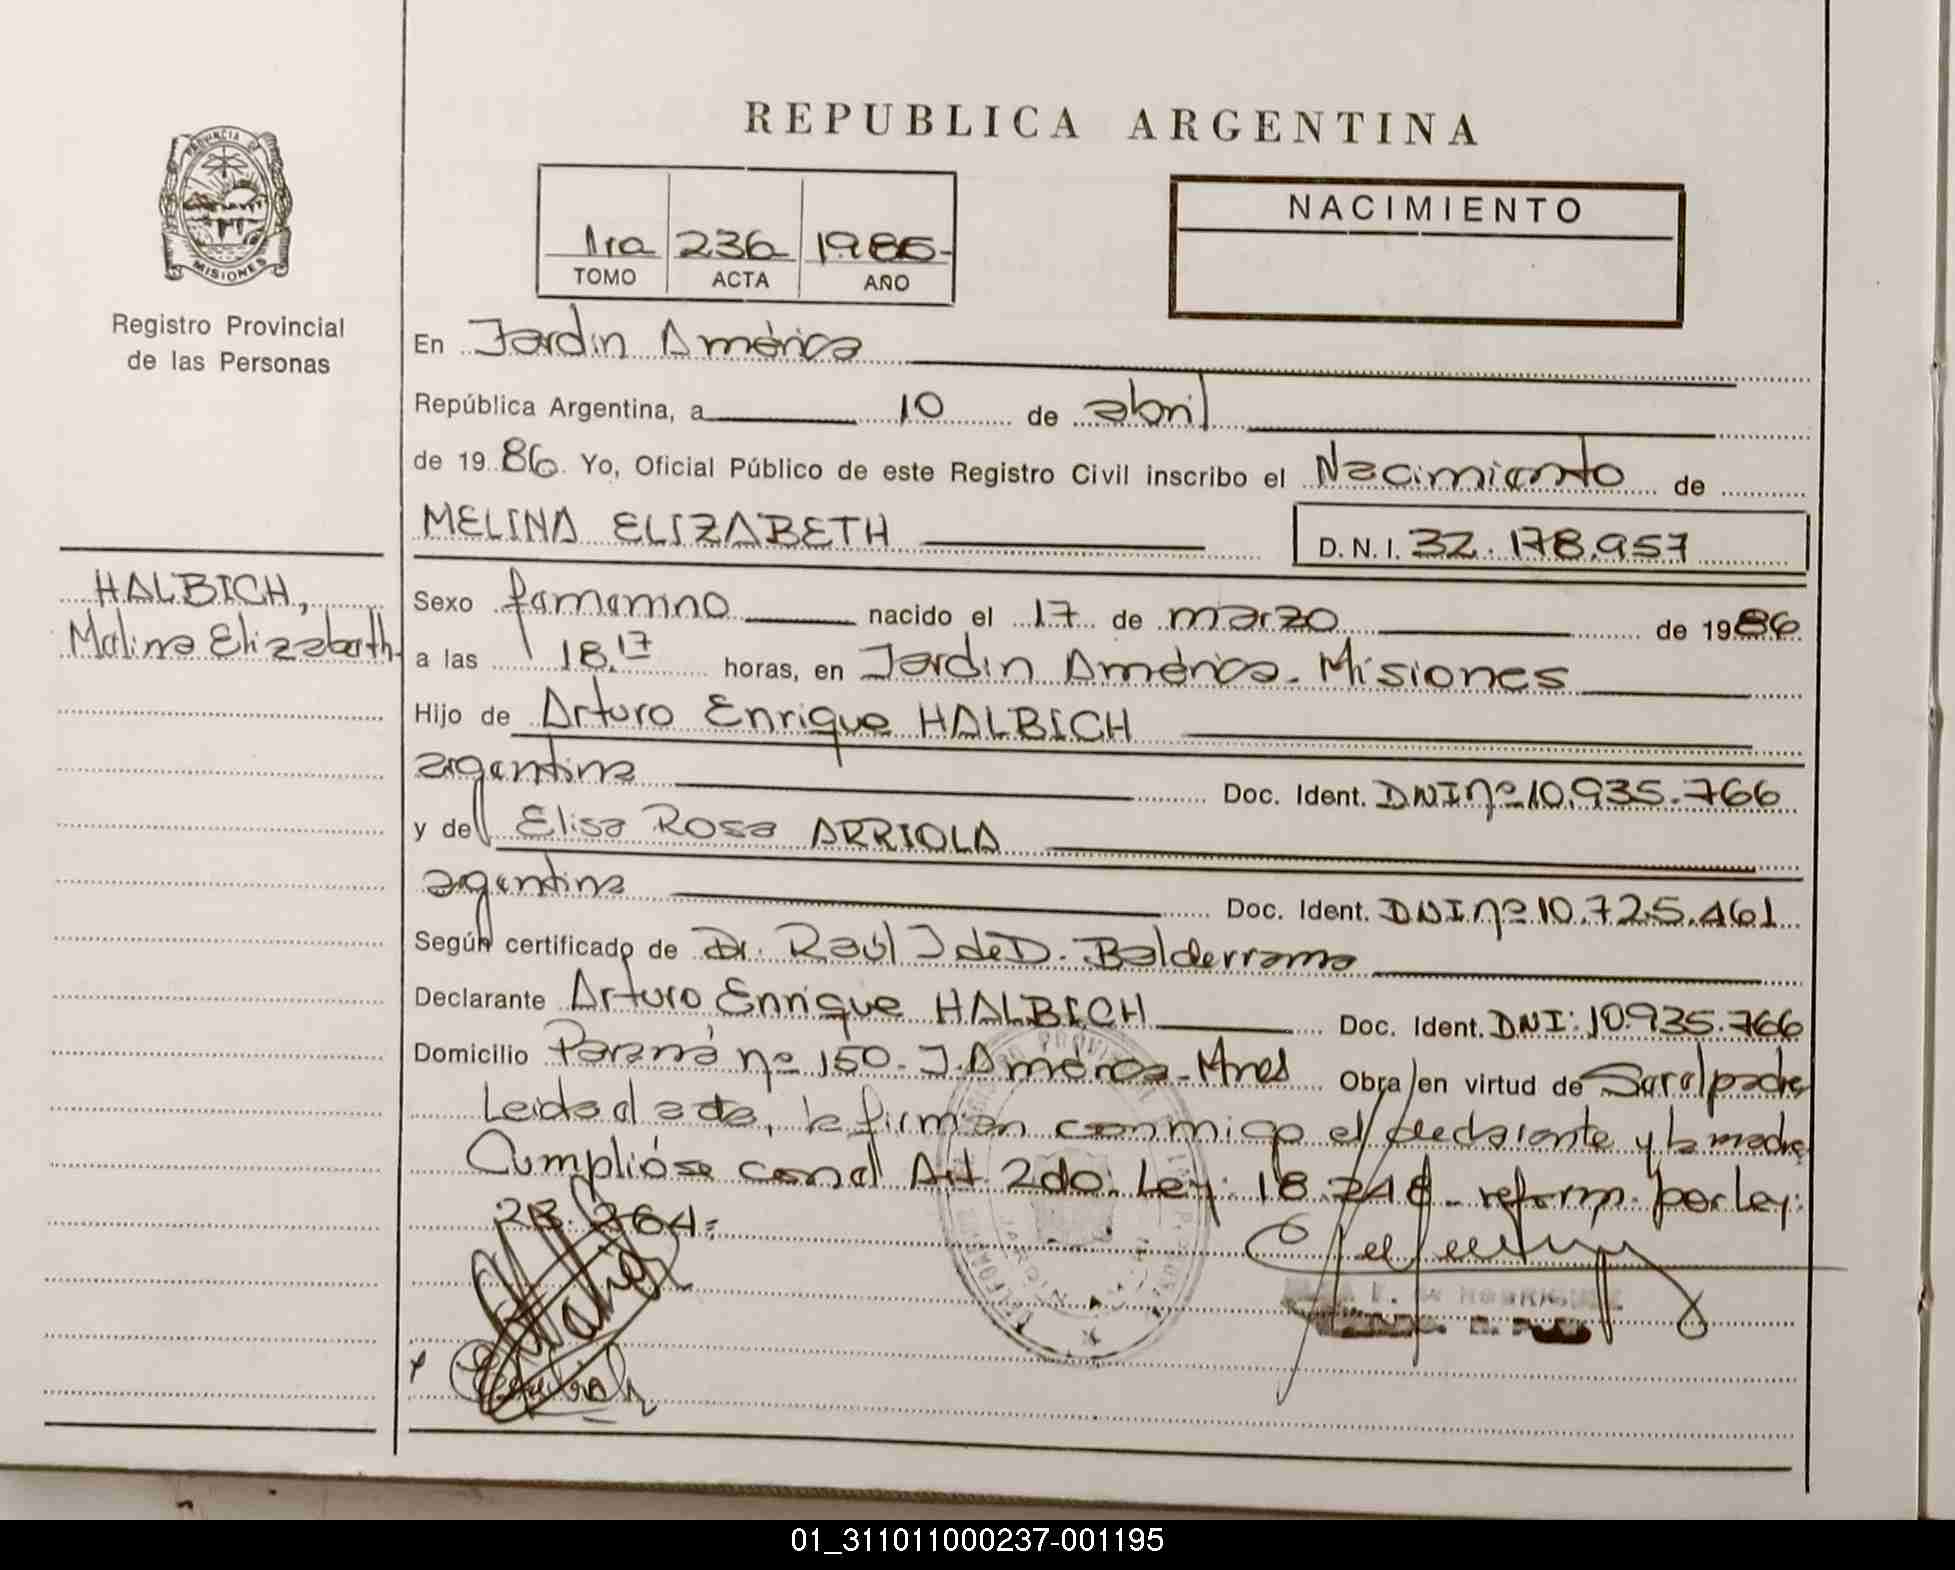 REPUBLICA ARGENTINA
PROVINCIA DE
MISIONES
Registro Provincial
de las Personas
1ra 236 1986
TOMO ACTA AÑO
NACIMIENTO
En Jardín América
República Argentina, a 10 de abril
de 1986. Yo, Oficial Público de este Registro Civil inscribo el Nacimiento de
MELINA ELIZABETH
D. N. I. 32.178.957
HALBICH,
Melina Elizabeth
Sexo femenino nacido el 17 de marzo de 1986
a las 18.17 horas, en Jardín América - Misiones
Hijo de Arturo Enrique HALBICH
argentina Doc. Ident. DNI nº 10.935.766
y de Elisa Rosa ARRIOLA
argentina Doc. Ident. DNI nº 10.725.461
Según certificado de Dr. Raúl J de D. Balderrama
Declarante Arturo Enrique HALBICH Doc. Ident. DNI: 10.935.766
Domicilio Paraná nº 150 - J. América - Mnes Obra en virtud de Ser el padre
Leída el acta, la firman conmigo el declarante y la madre
Cumplióse con el Art. 2do. Ley: 18.248 - reform. por Ley:
23.264 =
01_311011000237-001195